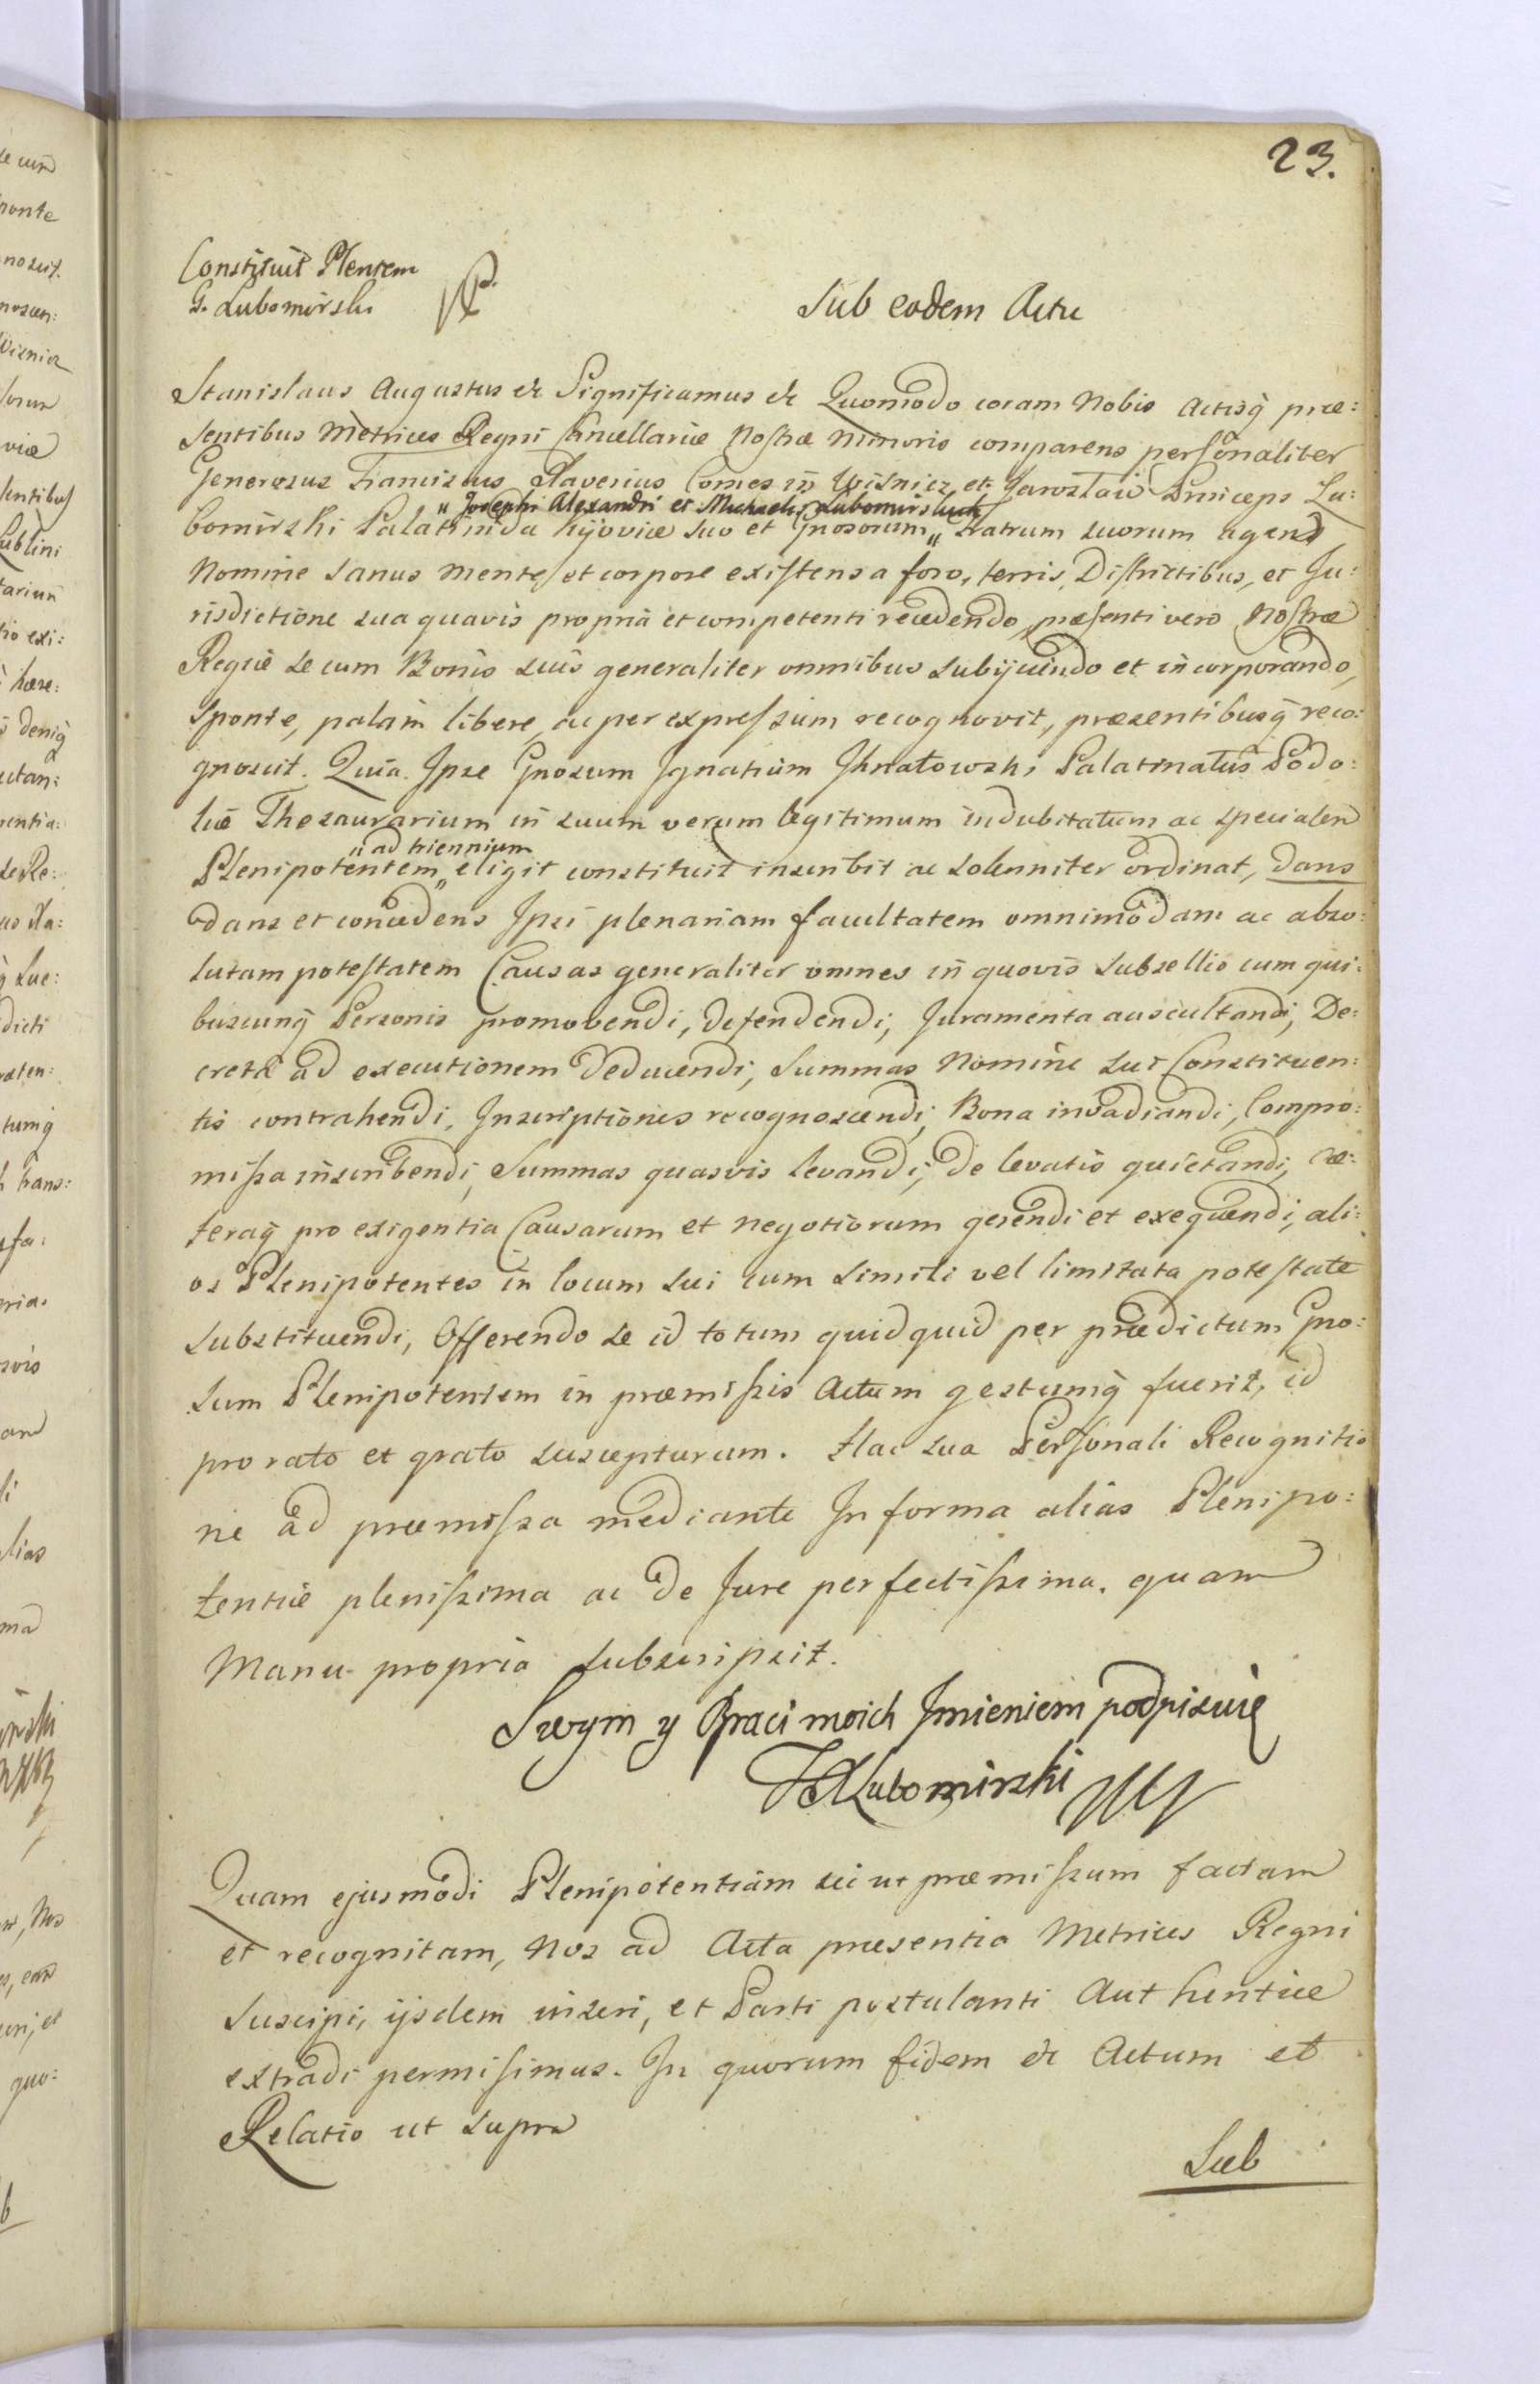 23.
Constituit Plentem
G. Lubomirski
Sub eodem Actu
Stanislaus Augustus etc Significamus etc Quomodo coram Nobis Actisq̃ præ:
sentibus Metrices Regni Cancellariæ Nostræ Minoris comparens personaliter
Generosus Franciscus Xaverius Comes in Wisnicz et Jaroslaw Princeps Lu:
„ Josephi Alexandri et Michaelis Lubomirskich
bomirski Palatinida Kijoviæ suo et Gnosorum „ Fratrum suorum agens
Nomine sanus mente et corpore existens a foro, terris, Districtibus, et Ju:
risdictione sua quavis propria et competenti recedendo, præsenti vero Nostræ
Regiæ se cum Bonis suis generaliter omnibus subijciendo et incorporando,
sponte, palam libere, ac per expressum recognovit, præsentibusq̃ reco:
gnoscit. Quia Ipse Gnosum Ignatium Ihnatowski Palatinatus Podo:
liæ Thesaurarium in suum verum legitimum indubitatum ac specialem
„ ad triennium
Plenipotentem „ eligit constituit inscribit ac solenniter ordinat, dans
dans et concedens Ipsi plenariam facultatem omnimodam ac abso:
lutam potestatem Causas generaliter omnes in quovis subsellio cum qui:
buscunq̃ Personis promovendi, defendendi, Juramenta auscultandi, De:
creta ad executionem deducendi, Summas Nomine sui Constituen:
tis contrahendi, Inscriptiones recognoscendi, Bona invadiandi, Compro:
missa inscribendi, Summas quasvis levandi, de levatis quietandi, cæ:
teraq̃ pro exigentia Causarum et negotiorum gerendi et exequendi, ali:
os Plenipotentes in locum sui cum simili vel limitata potestate
substituendi, Offerendo se id totum quidquid per prædictum Gno:
sum Plenipotentem in præmissis Actum gestumq̃ fuerit, id
pro rato et grato suscepturum. Hac sua Personali Recognitio
ne ad præmissa mediante In forma alias Plenipo:
tentiæ plenissima ac de Jure perfectissima. quam
Manu propria subscripsit.
Swym y Braci moich Imieniem podpisuię
FXLubomirski
Quam ejusmodi Plenipotentiam sic ut præmissum factam
et recognitam, Nos ad Acta præsentia Metrices Regni
suscipi, ijsdem inseri, et Parti postulanti Authentice
extradi permisimus. In quorum fidem etc Actum et
Relatio ut supra
Sub